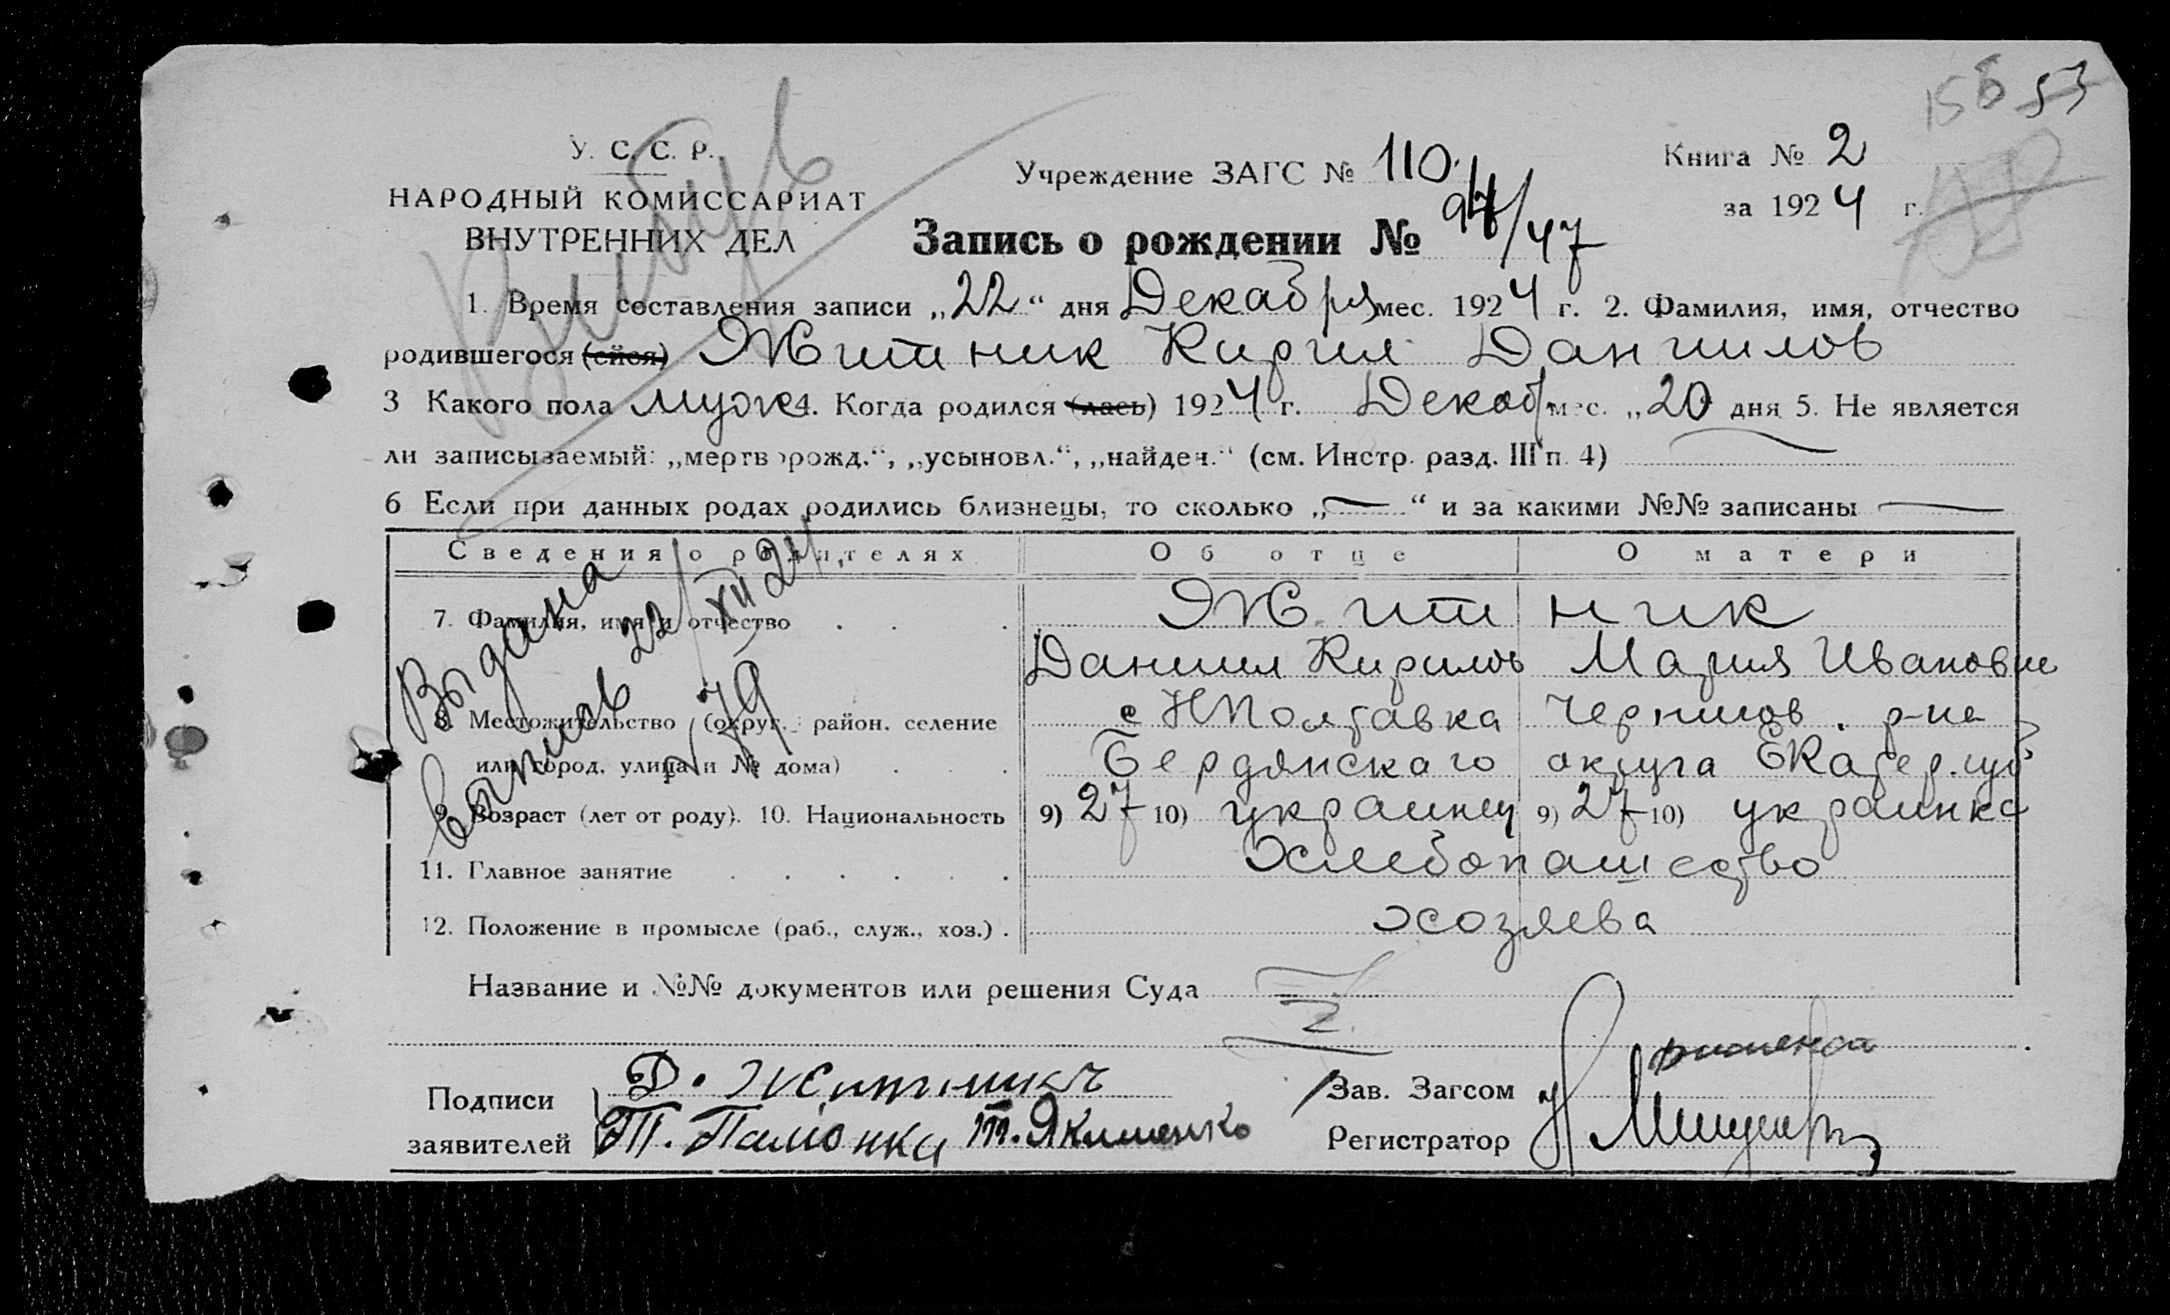 15 53
У. С. С. Р.
НАРОДНЫЙ КОМИССАРИАТ
ВНУТРЕННИХ ДЕЛ
Учреждение ЗАГС № 110.
Книга № 2
за 1924 г.
Запись о рождении № 94/47
1. Время составления записи „22“ дня Декабря мес. 1924 г. 2. Фамилия, имя, отчество
родившегося (ейся) Житник Кирил Данилов
3 Какого пола муж 4. Когда родился (лась) 1924 г. Декаб мес. „20 дня 5. Не является
ли записываемый: „мертворожд.“, „усыновл.“, „найден.“ (см. Инстр. разд. III п. 4)
6 Если при данных родах родились близнецы, то сколько „—“ и за какими №№ записаны —
Сведения о родителях Об отце О матери
7. Фамилия, имя и отчество . . . Житник
Даниил Кирилов Мария Ивановне
8. Местожительство (округ, район, селение с НПолтавка Чернигов. р-на
или город, улица и № дома) . . Бердянского округа Екатер. губ
9. Возраст (лет от роду). 10. Национальность 9) 27 10) украинец 9) 27 10) украинка
11. Главное занятие . . . . . . Хлебопашество
12. Положение в промысле (раб., служ., хоз.) . хозяева
Выдана
выпись 22/XII 24
№ 79
Название и №№ документов или решения Суда
Подписи
заявителей
Д. Житникъ
Т. Палонка т. Якименко
Зав. Загсом
Регистратор